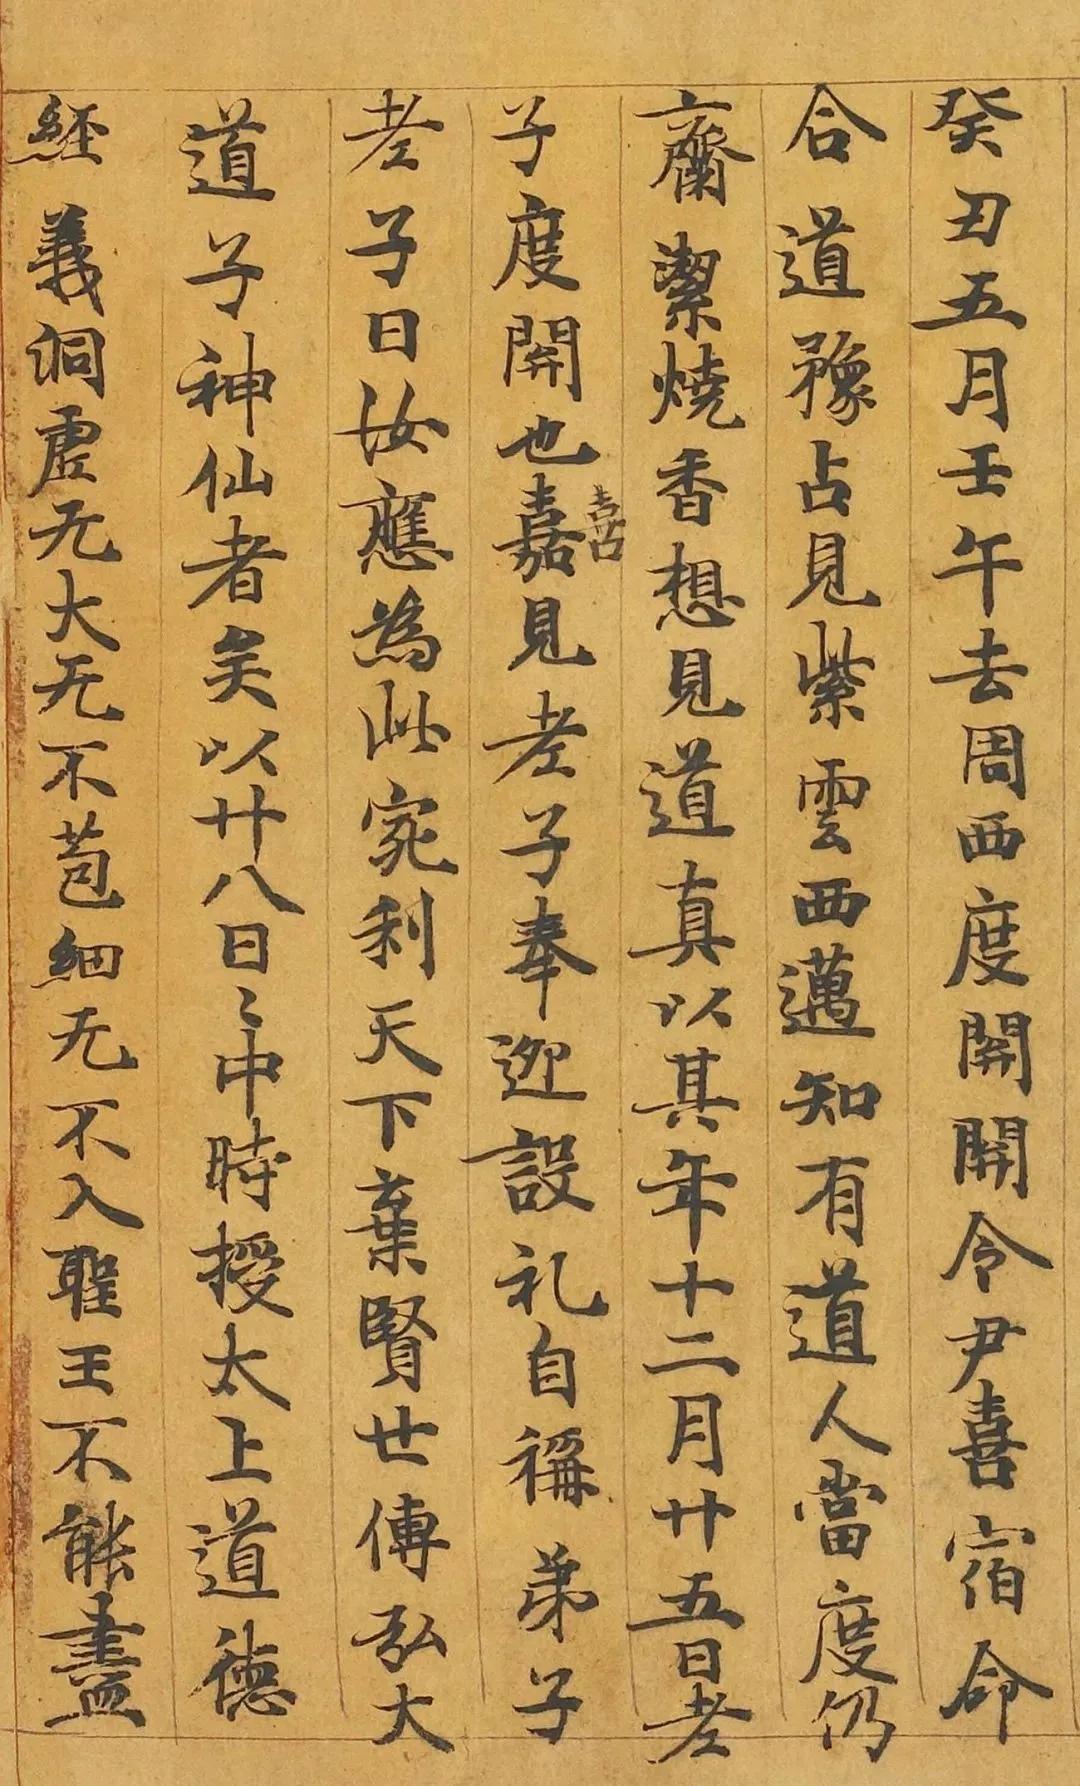 癸丑五月壬午去周西度開開令尹喜宿命
合道豫占見紫雲西邁知有道人當度仍
齋潔燒香想見道真以其年十二月廿五日老
子度開也嘉見老子奉迎設礼自稱弟子
喜
老子曰汝應為此宛利天下棄賢世傳弘大
道子神仙者矣以廿八日〻中時授太上道德
經義洞虛无大无不苞細无不入聖王不能盡